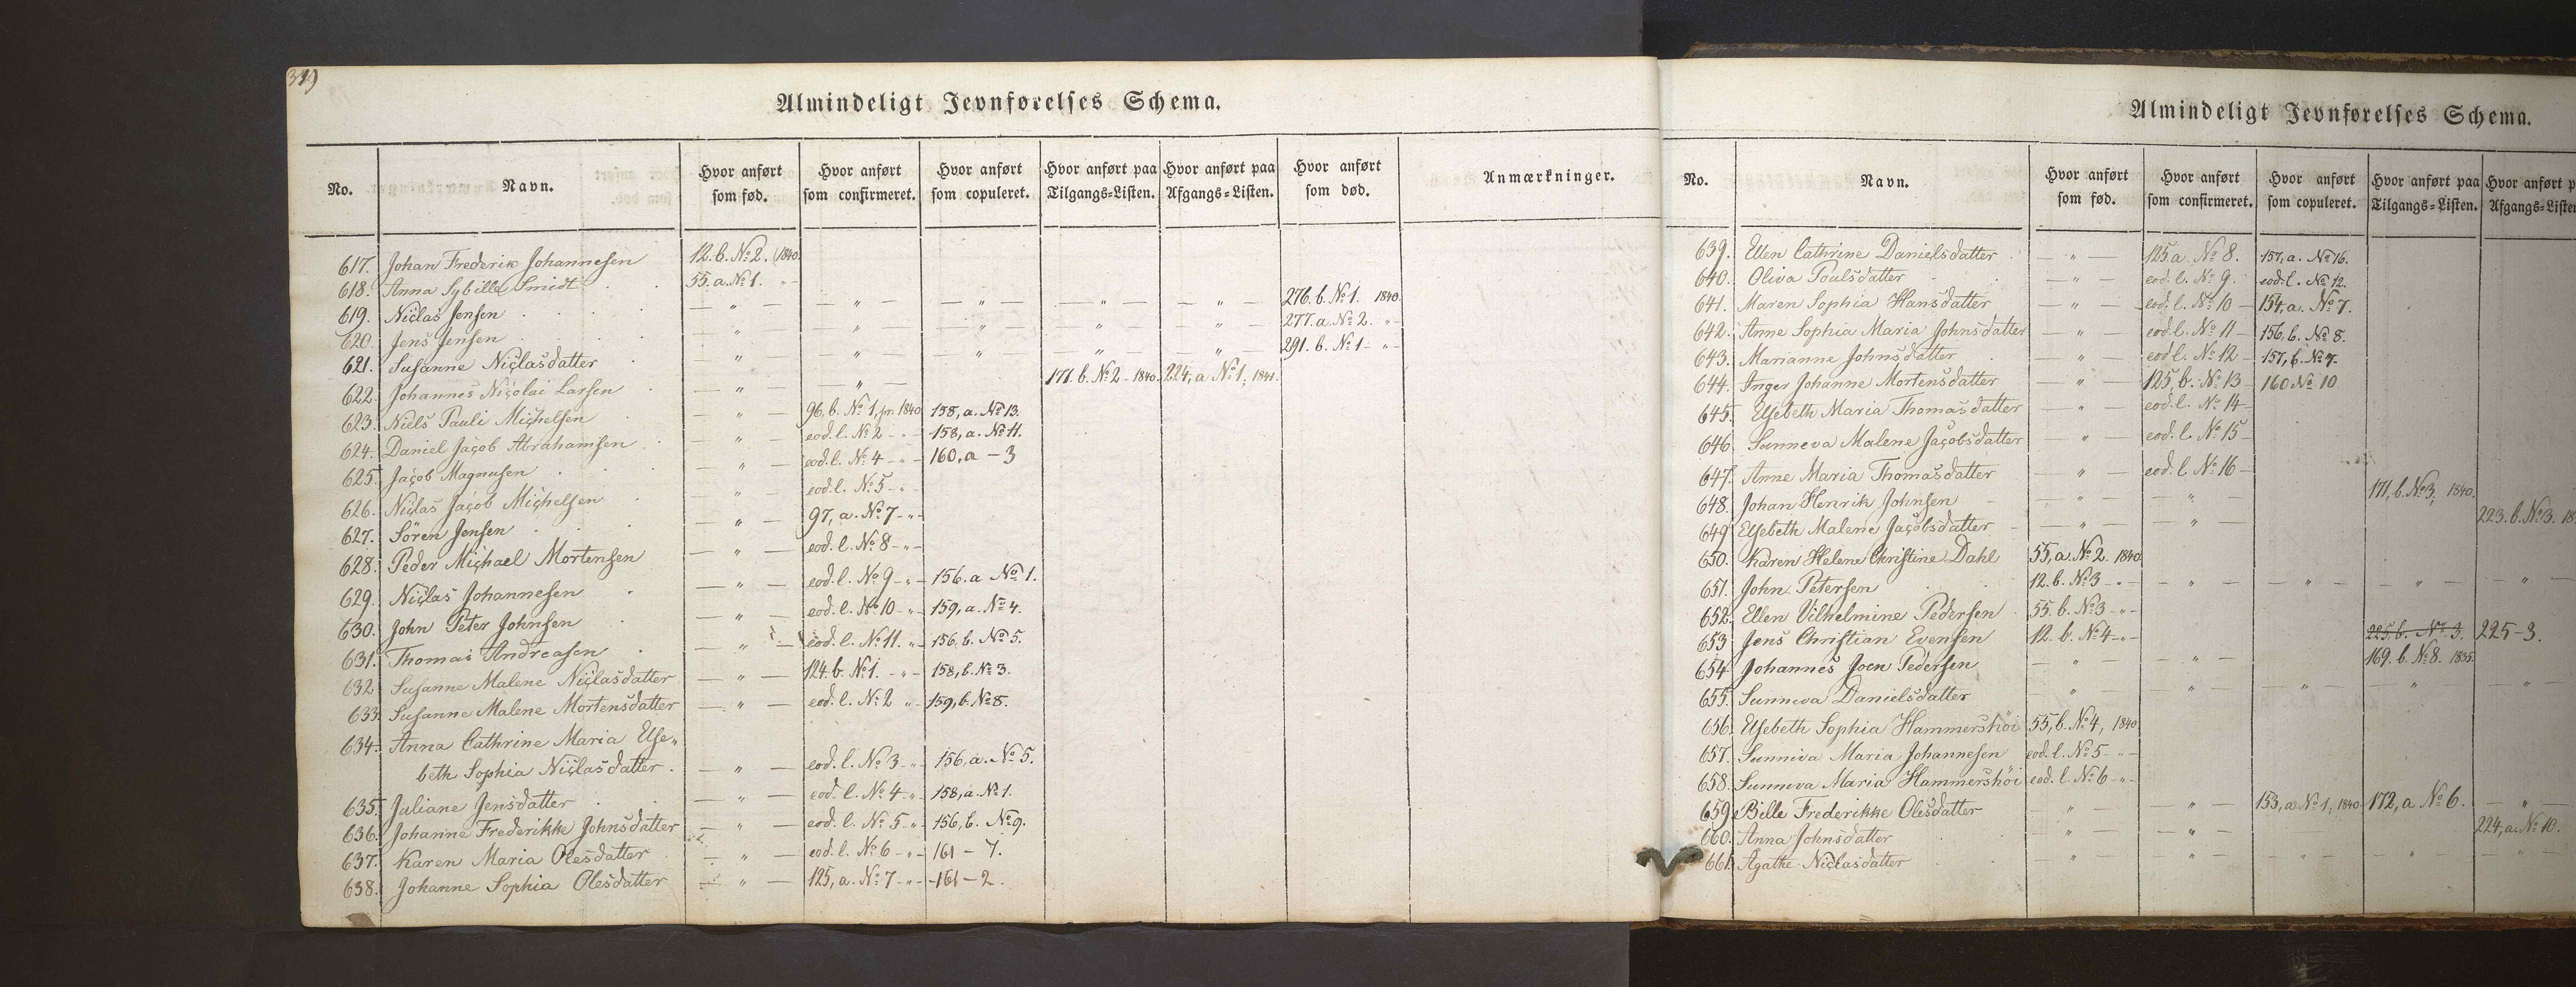 319
Almindeligt Jevnførelses Schema.
No. Navn. Hvor anført som fød. Hvor anført som confirmeret. Hvor anført som copuleret. Hvor anført paa Tilgangs-Listen. Hvor anført paa Afgangs-Listen. Hvor anført som død. Anmærkninger.
617. Johan Frederik Johannesen 12. b. No 2. (1840.
618. Anna Sybille Smidt 55. a. No 1. - " -
619. Niclas Jensen — " — — " — — " — — " — — " — 276. b. No 1. 1840.
620. Jens Jensen — " — — " — — " — — " — — " — 277. a. No 2. - " -
621. Susanne Niclasdatter — " — — " — " — " — — " — 291. b. No 1 - " -
622. Johannes Nicolai Larsen — " — — " — 171. b. No 2 - 1840. 224, a No 1, 1841.
623. Niels Pauli Michelsen — " — 96. b. No 1, pr. 1840 158, a. No 13.
624. Daniel Jacob Abrahamsen — " — eod. l. No 2 - " - 158, a. No 11.
625. Jacob Magnusen — " — eod. l. No 4 - " - 160, a - 3
626. Niclas Jacob Michelsen — " — eod. l. No 5 - " -
627. Sören Jensen — " — 97, a. No 7 - " -
628. Peder Michael Mortensen — " — eod. l. No 8 - " -
629. Niclas Johannesen — " — eod. l. No 9 - " - 156. a No 1.
630. John Peter Johnsen — " — eod. l. No 10 - " - 159, a. No 4.
631. Thomas Andreasen — " — eod. l. No 11. " - 156, b. No 5.
632. Susanne Malene Niclasdatter — " — 124. b. No 1. - " - 158, b. No 3.
633. Susanne Malene Mortensdatter — " — eod. l. No 2 " - 159, b. No 8.
634. Anna Cathrine Maria Else„
beth Sophia Niclasdatter. — " — eod. l. No 3 - " - 156, a. No 5.
635. Juliane Jensdatter — " — eod. l. No 4 - " - 158, a. No 1.
636. Johanne Frederikke Johnsdatter — " — eod. l. No 5 - " - 156, b. No 9.
637. Karen Maria Olesdatter — " — eod. l. No 6 - " - 161 - 7.
638. Johanne Sophia Olesdatter — " — 125, a. No 7 - " - 161 - 2.
Almindeligt Jevnførelses Schema.
No. Navn. Hvor anført som fød. Hvor anført som confirmeret. Hvor anført som copuleret. Hvor anført paa Tilgangs-Listen. Hvor anført p Afgangs-Listen
639. Ellen Cathrine Danielsdatter — " — 125 a. No 8. 157, a. No 16.
640. Oliva Poulsdatter — " — eod. l. No 9. eod. l. No 12.
641. Maren Sophia Hansdatter — " — eod. l. No 10 - 154, a. No 7.
642. Anne Sophia Maria Johnsdatter — " — eod. l. No 11 - 156, b. No 8.
643. Marianne Johnsdatter — " — eod. l. No 12 - 157, b. No 7.
644. Inger Johanne Mortensdatter — " — 125, b. No 13 - 160 No 10
645. Elsebeth Maria Thomasdatter — " — eod. l. No 14 -
646. Sunneva Malene Jacobsdatter — " — eod. l. No 15 -
647. Anne Maria Thomasdatter — " — eod. l. No 16 -
648. Johan Henrik Johnsen — " — — " — 171, b. No 3, 1840.
649. Elsebeth Malene Jacobsdatter — " — — " 223. b. No 3. 18
650. Karen Helene Christine Dahl 55, a. No 2. 1840
651. John Petersen 12. b. No 3 - " - — " — — " — — " — — " —
652. Ellen Vilhelmine Pedersen 55. b. No 3 - " -
653. Jens Christian Evensen 12. b. No 4 - " - 225 b. No 3. 225 - 3.
654. Johannes Joen Pedersen — " — — " — 169. b. No 8. 1835.
655. Sunneva Danielsdatter — " — " — — " — — " — — " —
656. Elsebeth Sophia Hammershöi 55, b. No 4, 1840
657. Sunneva Maria Johannesen eod. l. No 5 - " -
658. Sunneva Maria Hammershöi eod. l. No 6 - " -
659. Bille Frederikke Olesdatter — " — " — 153, a No 1, 1840 172, a No 6. — " —
660. Anna Johnsdatter — " — — " — 224, a. No 10.
661. Agathe Niclasdatter — " — " — — " — " — " —